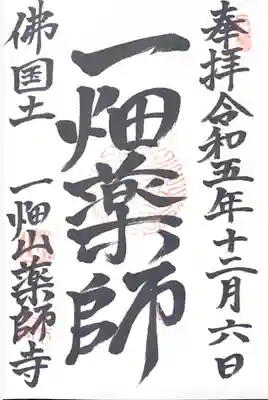 奉拝令和五年十二月六日
一畑薬師
佛国土 一畑山薬師寺